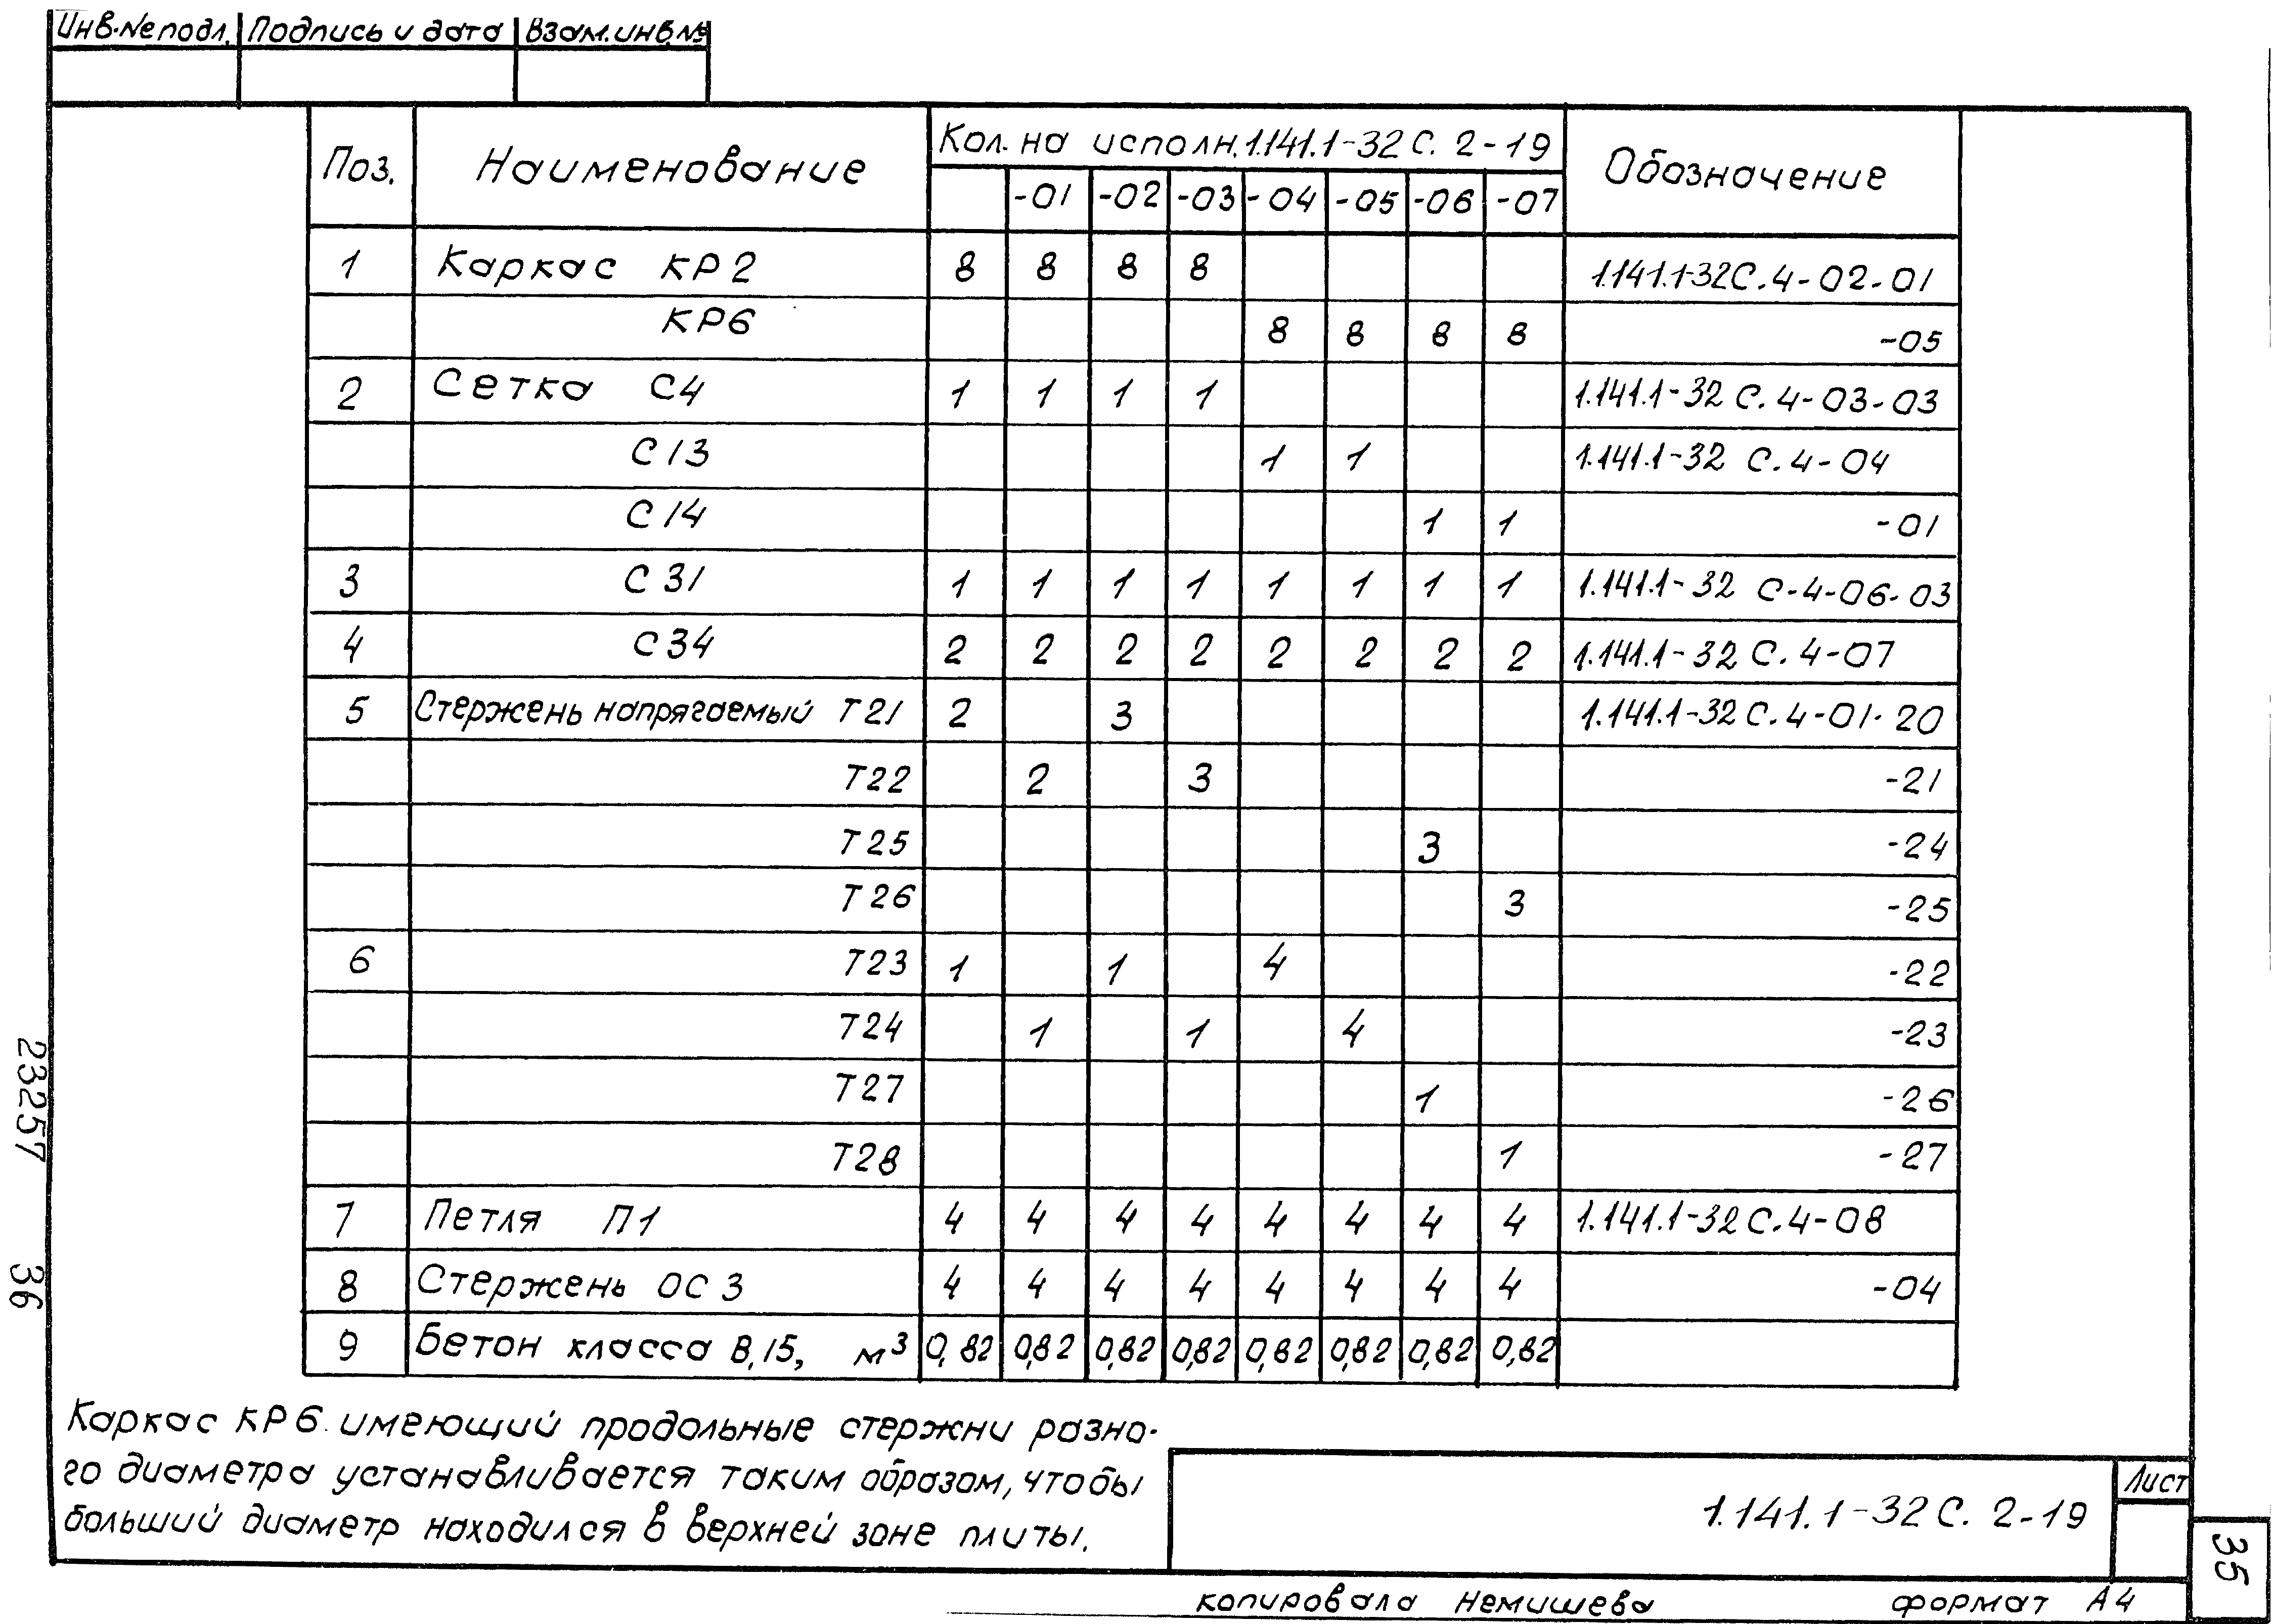 Инв.№ подл. Подпись и дата Взам.инв.№
Поз. Наименование Кол. на исполн. 1.141.1-32 С. 2-19 Обозначение
-01 -02 -03 -04 -05 -06 -07
1 Каркас КР2 8 8 8 8 1.141.1-32С.4-02-01
КР6 8 8 8 8 -05
2 Сетка С4 1 1 1 1 1.141.1-32 С.4-03-03
С13 1 1 1.141.1-32 С.4-04
С14 1 1 -01
3 С31 1 1 1 1 1 1 1 1 1.141.1-32 С-4-06-03
4 С34 2 2 2 2 2 2 2 2 1.141.1-32 С.4-07
5 Стержень напрягаемый Т21 2 3 1.141.1-32 С.4-01-20
Т22 2 3 -21
Т25 3 -24
Т26 3 -25
6 Т23 1 1 4 -22
Т24 1 1 4 -23
Т27 1 -26
Т28 1 -27
7 Петля П1 4 4 4 4 4 4 4 4 1.141.1-32 С.4-08
8 Стержень ОС3 4 4 4 4 4 4 4 4 -04
9 Бетон класса В,15, м³ 0,82 0,82 0,82 0,82 0,82 0,82 0,82 0,82
Каркас КР6 имеющий продольные стержни разно-
го диаметра устанавливается таким образом, чтобы
больший диаметр находился в верхней зоне плиты.
1.141.1-32 С. 2-19
Лист
35
копировала Немишева формат А4
23257 36